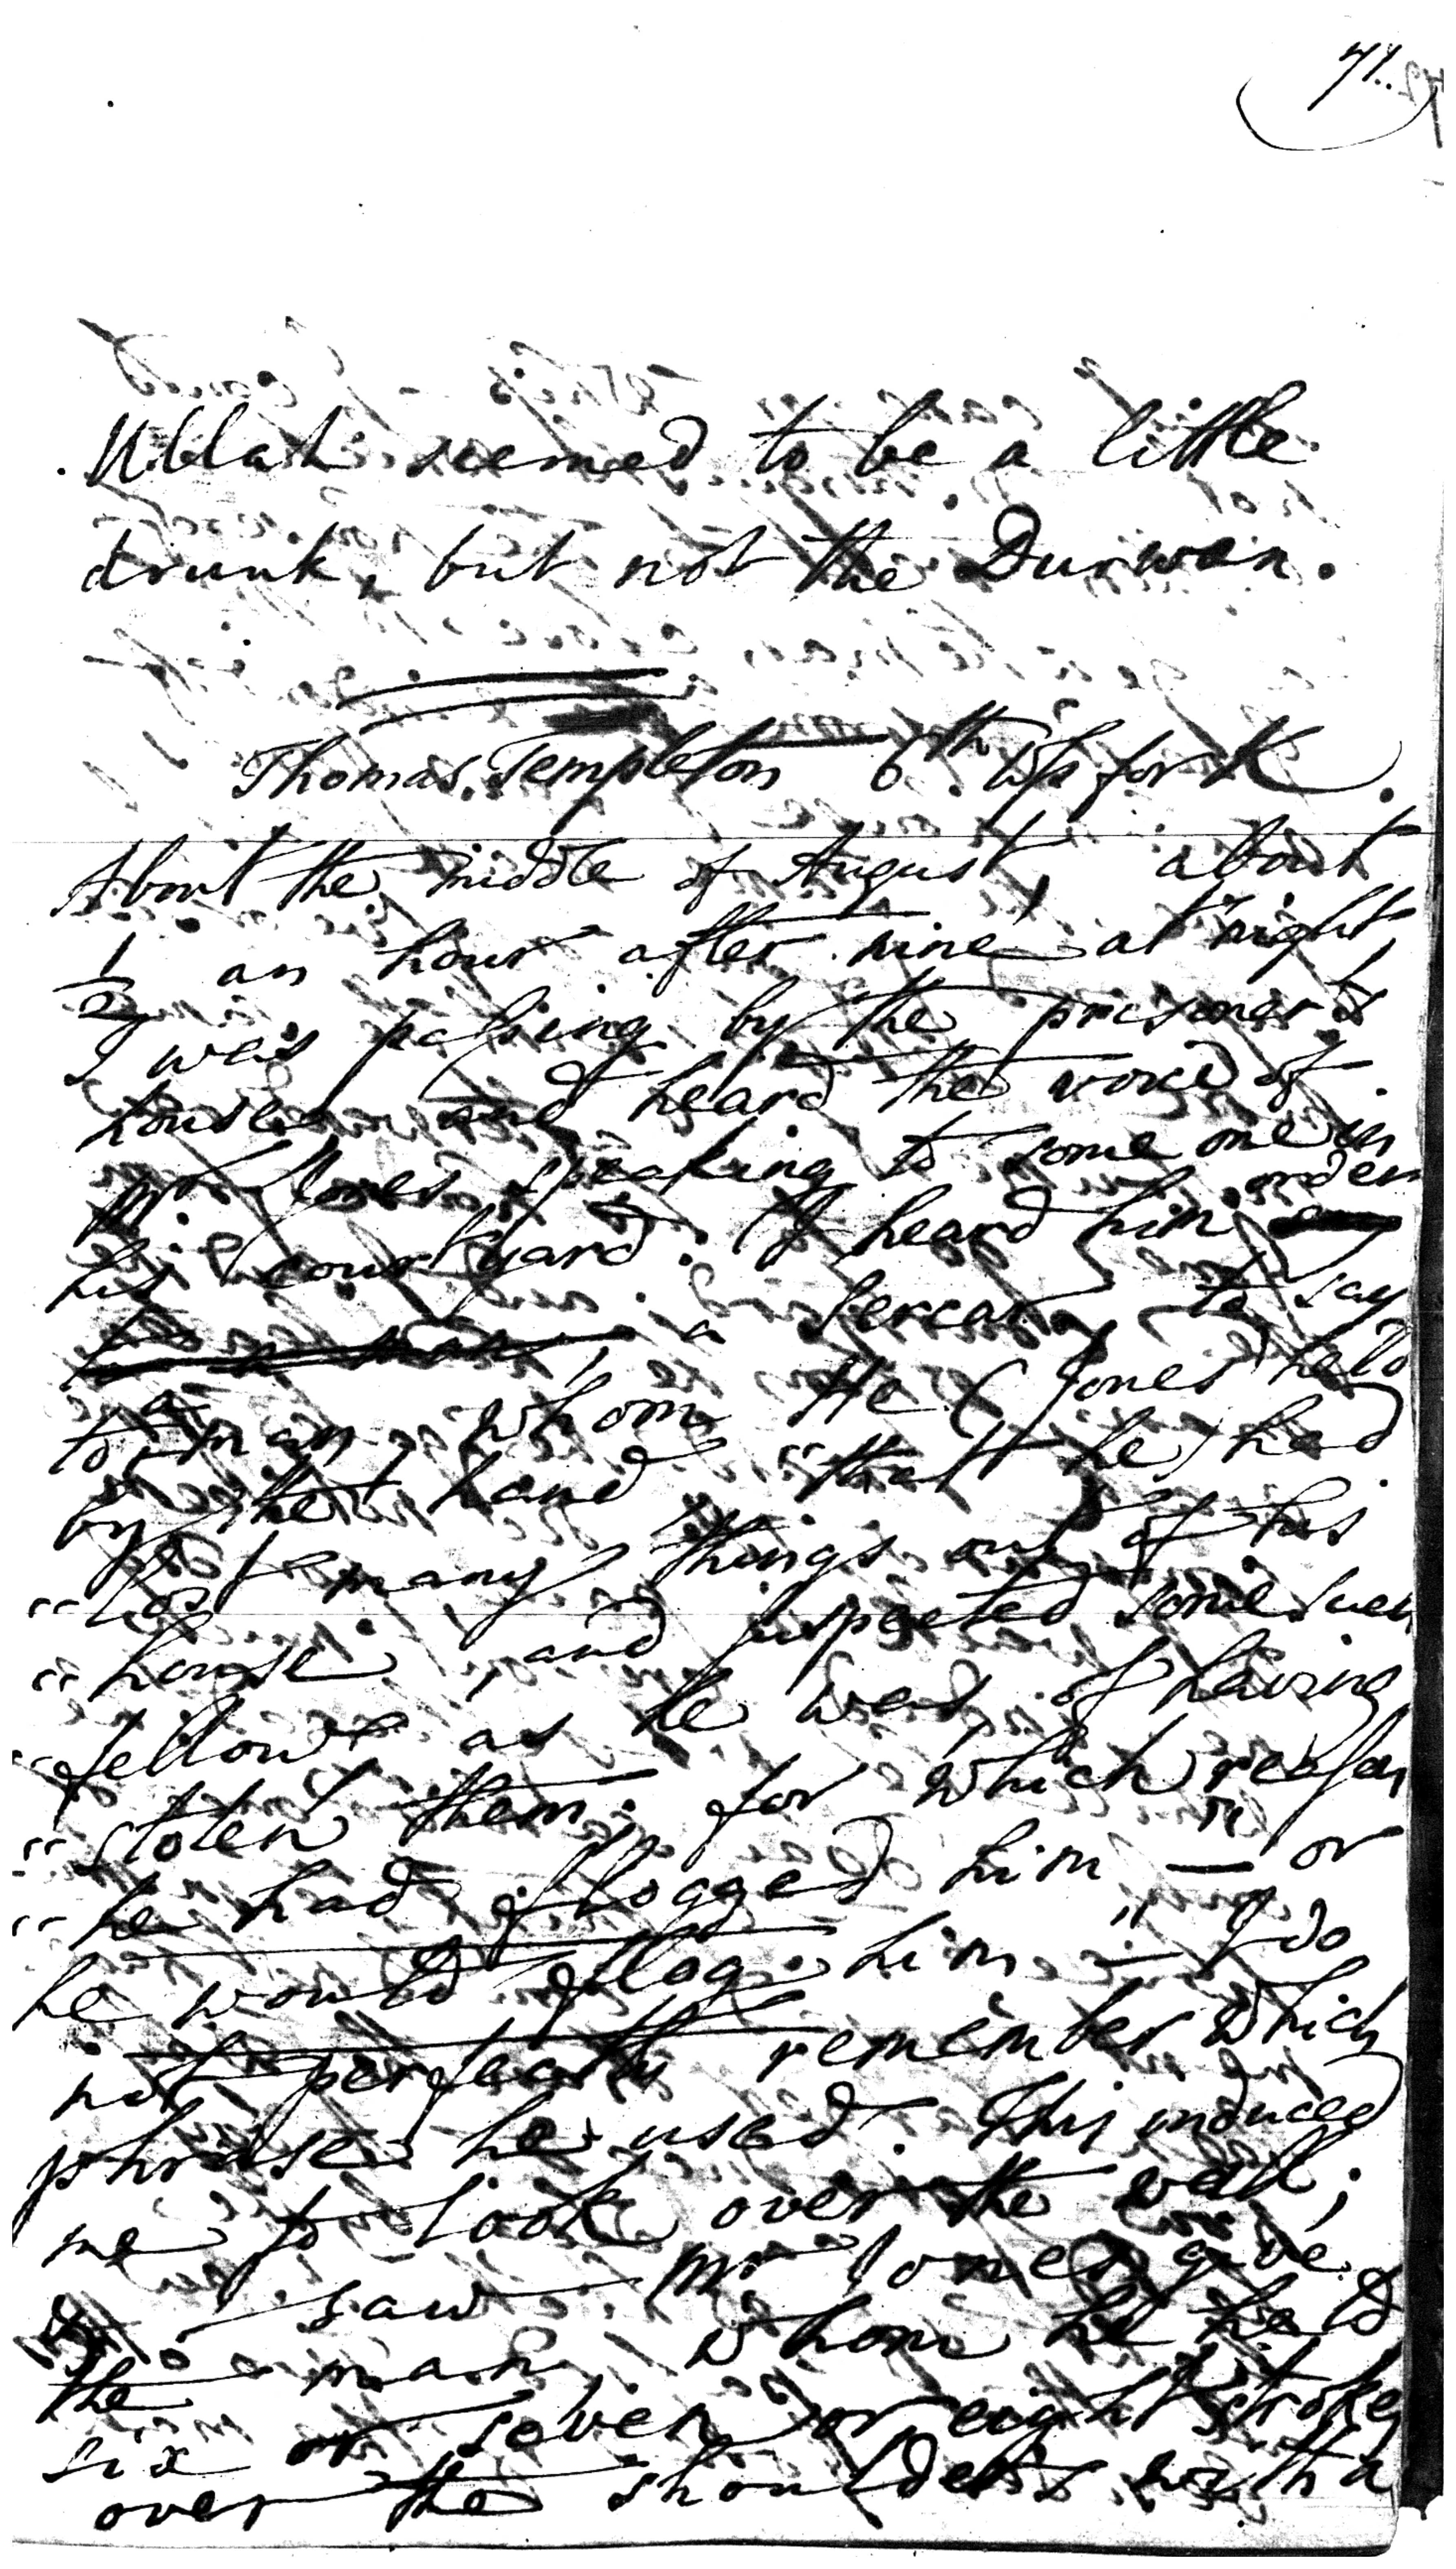 71.
Ullah seemed to be a little
drunk, but not the Durwan.
Thomas Templeton 6th Wss for K.
About the middle of August, about
1/2 an hour after nine at night,
I was passing by the prisoner's
house and heard the voice of
Mr. Jones speaking to some one in
his court yard. I heard him order
a Sercar to say
to a man, whom He (Jones held
by the hand "that he had
"lost many things out of his
"house, and suspected some such
"fellow as he was, of having
"stolen them; for which reason
"he had flogged him" — or
he would flog him" — I do
not perfectly remember which
phrase he used. This induced
me to look over the wall;
saw Mr Jones give
the man, whom he held
six or seven or eight strokes
over the shoulders with a